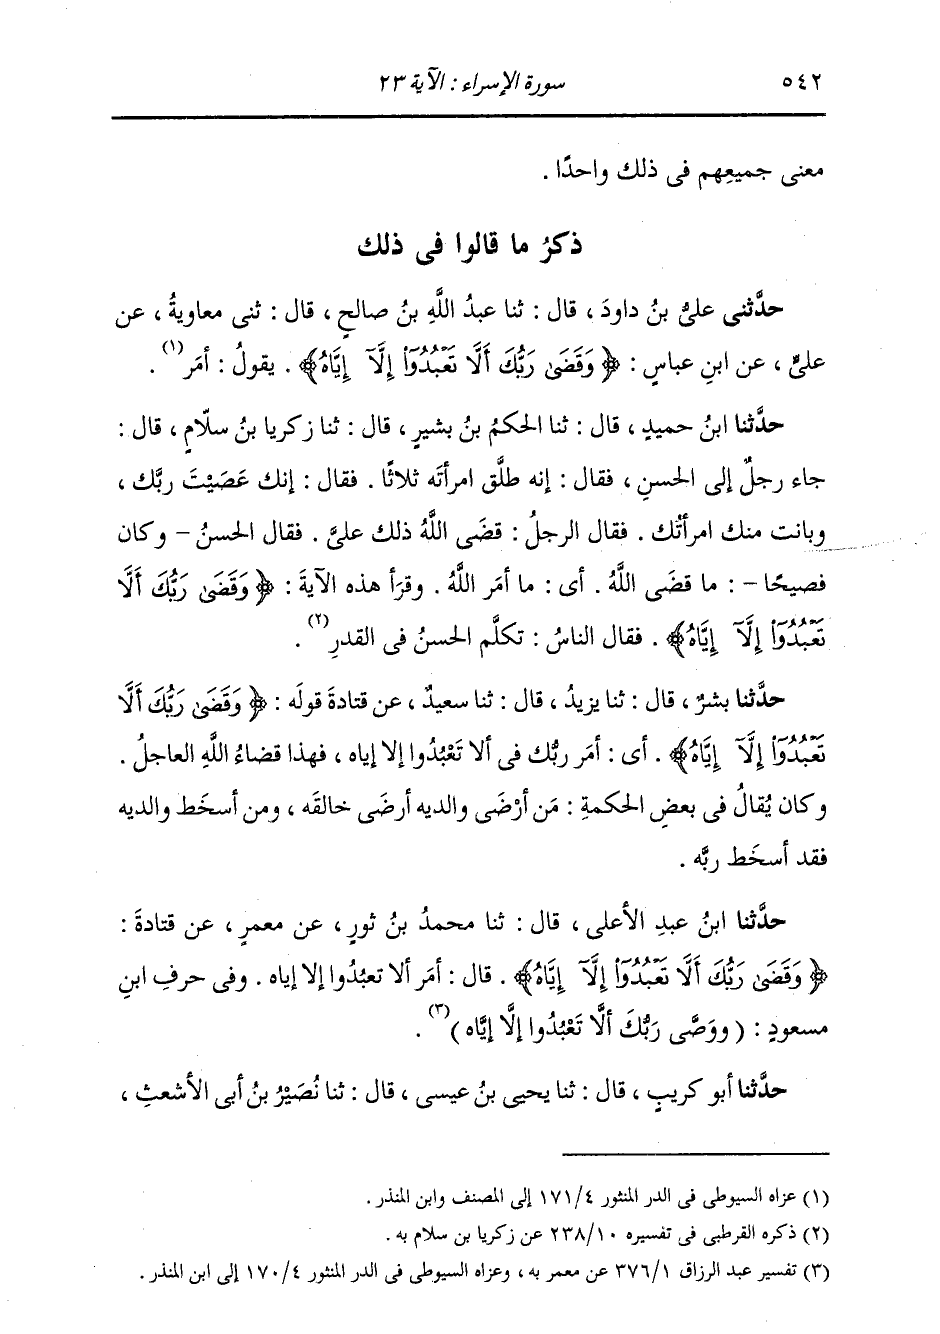 ٥٤٢ سورة الإسراء : الآية ٢٣
معنى جميعِهم فى ذلك واحدًا .
ذكرُ ما قالوا فى ذلك
حدَّثنى علىُّ بنُ داودَ ، قال : ثنا عبدُ اللَّهِ بنُ صالحٍ ، قال : ثنى معاويةُ ، عن
علىٍّ ، عن ابنِ عباسٍ : ﴿ وَقَضَىٰ رَبُّكَ أَلَّا تَعْبُدُوٓا۟ إِلَّآ إِيَّاهُ ﴾ . يقولُ : أمَر (١) .
حدَّثنا ابنُ حميدٍ ، قال : ثنا الحكمُ بنُ بشيرٍ ، قال : ثنا زكريا بنُ سلَّامٍ ، قال :
جاء رجلٌ إلى الحسنِ ، فقال : إنه طلَّق امرأتَه ثلاثًا . فقال : إنك عَصَيْتَ ربَّك ،
وبانت منك امرأتُك . فقال الرجلُ : قضَى اللَّهُ ذلك علىَّ . فقال الحسنُ - وكان
فصيحًا - : ما قضَى اللَّهُ . أى : ما أمَر اللَّهُ . وقرَأ هذه الآيةَ : ﴿ وَقَضَىٰ رَبُّكَ أَلَّا
تَعْبُدُوٓا۟ إِلَّآ إِيَّاهُ ﴾ . فقال الناسُ : تكلَّم الحسنُ فى القدرِ (٢) .
حدَّثنا بشرٌ ، قال : ثنا يزيدُ ، قال : ثنا سعيدٌ ، عن قتادةَ قولَه : ﴿ وَقَضَىٰ رَبُّكَ أَلَّا
تَعْبُدُوٓا۟ إِلَّآ إِيَّاهُ ﴾ . أى : أمَر ربُّك فى ألا تَعْبُدُوا إلا إياه ، فهذا قضاءُ اللَّهِ العاجلُ .
وكان يُقالُ فى بعضِ الحكمةِ : مَن أرْضَى والديه أرضَى خالقَه ، ومن أسخَط والديه
فقد أسخَط ربَّه .
حدَّثنا ابنُ عبدِ الأعلى ، قال : ثنا محمدُ بنُ ثورٍ ، عن معمرٍ ، عن قتادةَ :
﴿ وَقَضَىٰ رَبُّكَ أَلَّا تَعْبُدُوٓا۟ إِلَّآ إِيَّاهُ ﴾ . قال : أمَر ألا تعبُدُوا إلا إياه . وفى حرفِ ابنِ
مسعودٍ : ( ووَصَّى رَبُّكَ ألَّا تَعْبُدُوا إلَّا إيَّاه ) (٣) .
حدَّثنا أبو كريبٍ ، قال : ثنا يحيى بنُ عيسى ، قال : ثنا نُصَيْرُ بنُ أبى الأشعثِ ،
(١) عزاه السيوطى فى الدر المنثور ١٧١/٤ إلى المصنف وابن المنذر .
(٢) ذكره القرطبى فى تفسيره ٢٣٨/١٠ عن زكريا بن سلام به .
(٣) تفسير عبد الرزاق ٣٧٦/١ عن معمر به ، وعزاه السيوطى فى الدر المنثور ١٧٠/٤ إلى ابن المنذر .